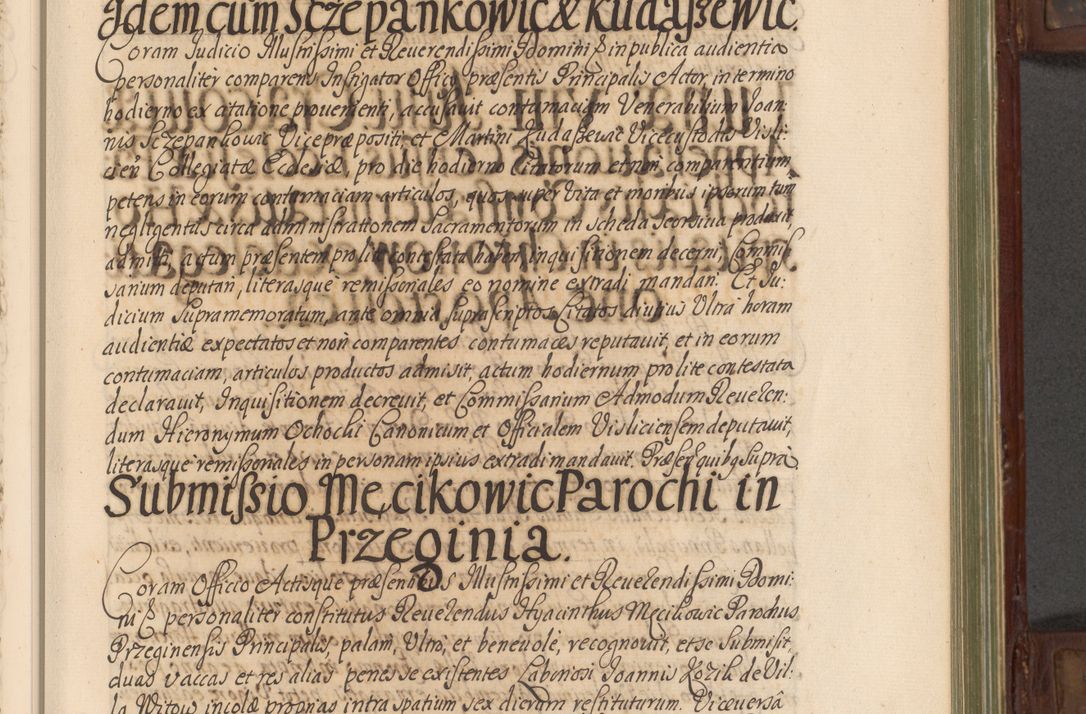 Idem cum Sczepankowic & Kudaszewic.
Coram Judicio Illustrissimi et Reverendissimi Domini & in publica audientia
personaliter comparens Instigator Officij præsentis Principalis Actor, in termino
hodierno ex citatione provenienti, accusavit contumaciam Venerabilium Joan:
nis Sczepankowic Vicepræpositi, et Martini Kudaszewic Vicecustodis Visli:
cien Collegiatæ Ecclesiæ, pro die hodierno Citatorum et non comparentium,
petens in eorum contumaciam articulos, quos super vita et moribus ipsorum tum
negligentias circa administrationem Sacramentorum in scheda seorsiva produxit,
admitti, actum præsentem pro lite contestata haberi, inquisitionem decerni, Commis
sarium deputari, literasque remissionales eo nomine extradi mandari. Et Ju:
dicium Supramemoratum, ante omnia suprascriptos Citatos diutius Ultra horam
audientiæ expectatos et non comparentes contumaces reputavit, et in eorum
contumaciam, articulos productos admisit, actum hodiernum pro lite contestata
declaravit, Inquisitionem decrevit, et Commissarium Admodum Reveren:
dum Hieronymum Ochocki Canonicum et Officialem Visliciensem deputavit,
literasque remissionales in personam ipsius extradi mandavit. Præsen quibq supra
Submissio Męcikowic Parochi in
Przeginia.
Coram Officio Actisque præsentibus Illustrissimi et Reverendissimi Domi:
ni & personaliter constitutus Reverendus Hyacinthus Męcikowic Parochus
Przeginensis Principalis, palam, Ultro, et benevole, recognovit, et se submisit,
duas vaccas et res alias penes se existentes Laboriosi Joannis Kozik de Vil:
la Witow incolæ proprias intra spatium sex dierum restituturum. Viceversâ